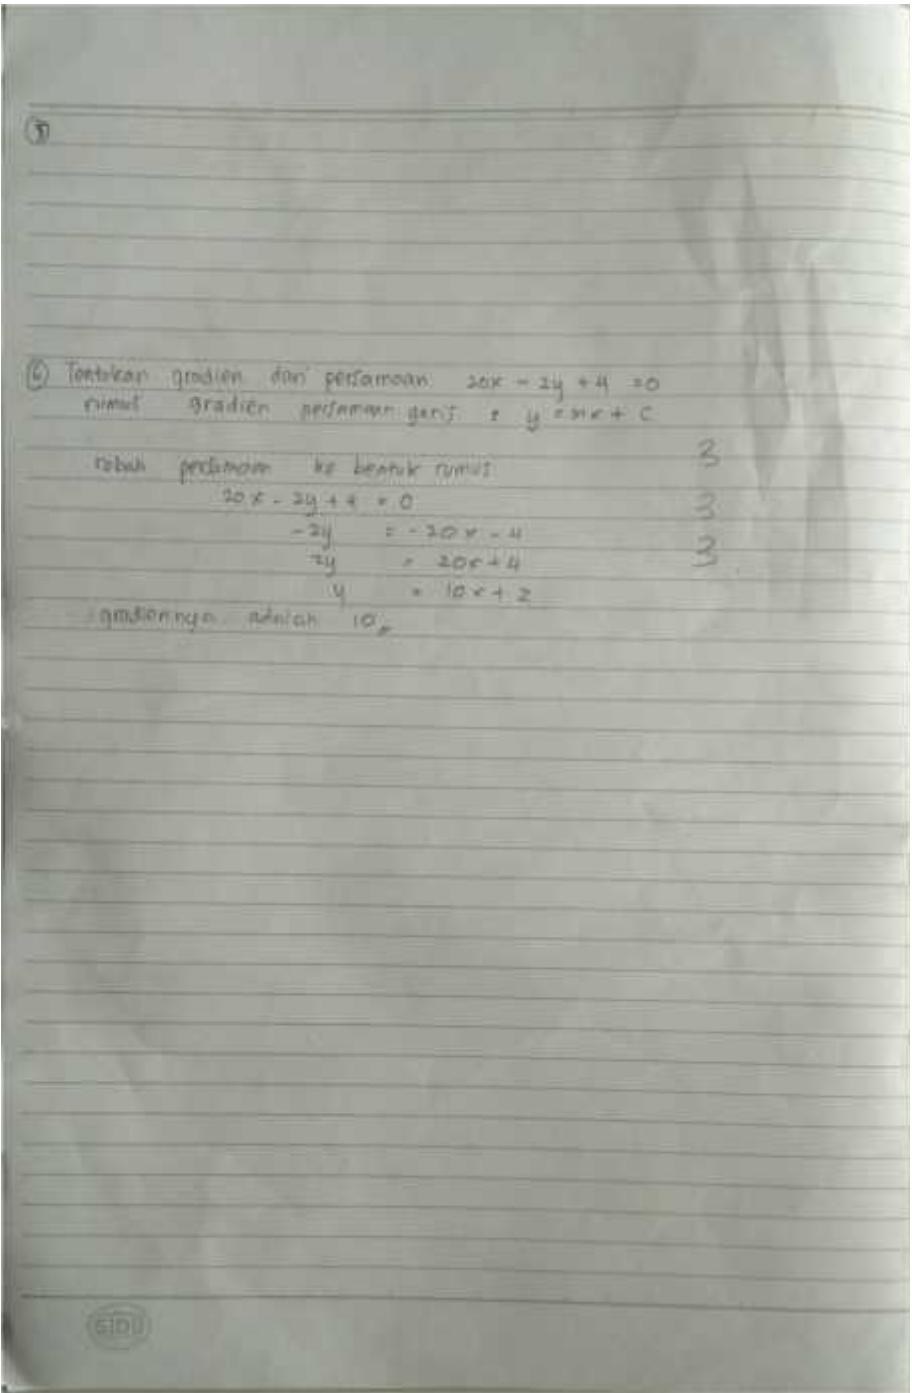 ⑤
⑥ Tentukan gradien dari persamaan 20x - 2y + 4 = 0
rumus gradien persamaan garis : y = mx + C
3
robah persamaan ke bentuk rumus
20x - 2y + 4 = 0
3
-2y = -20x - 4
2y = 20x + 4
3
y = 10x + 2
gradiennya adalah 10
SIDU